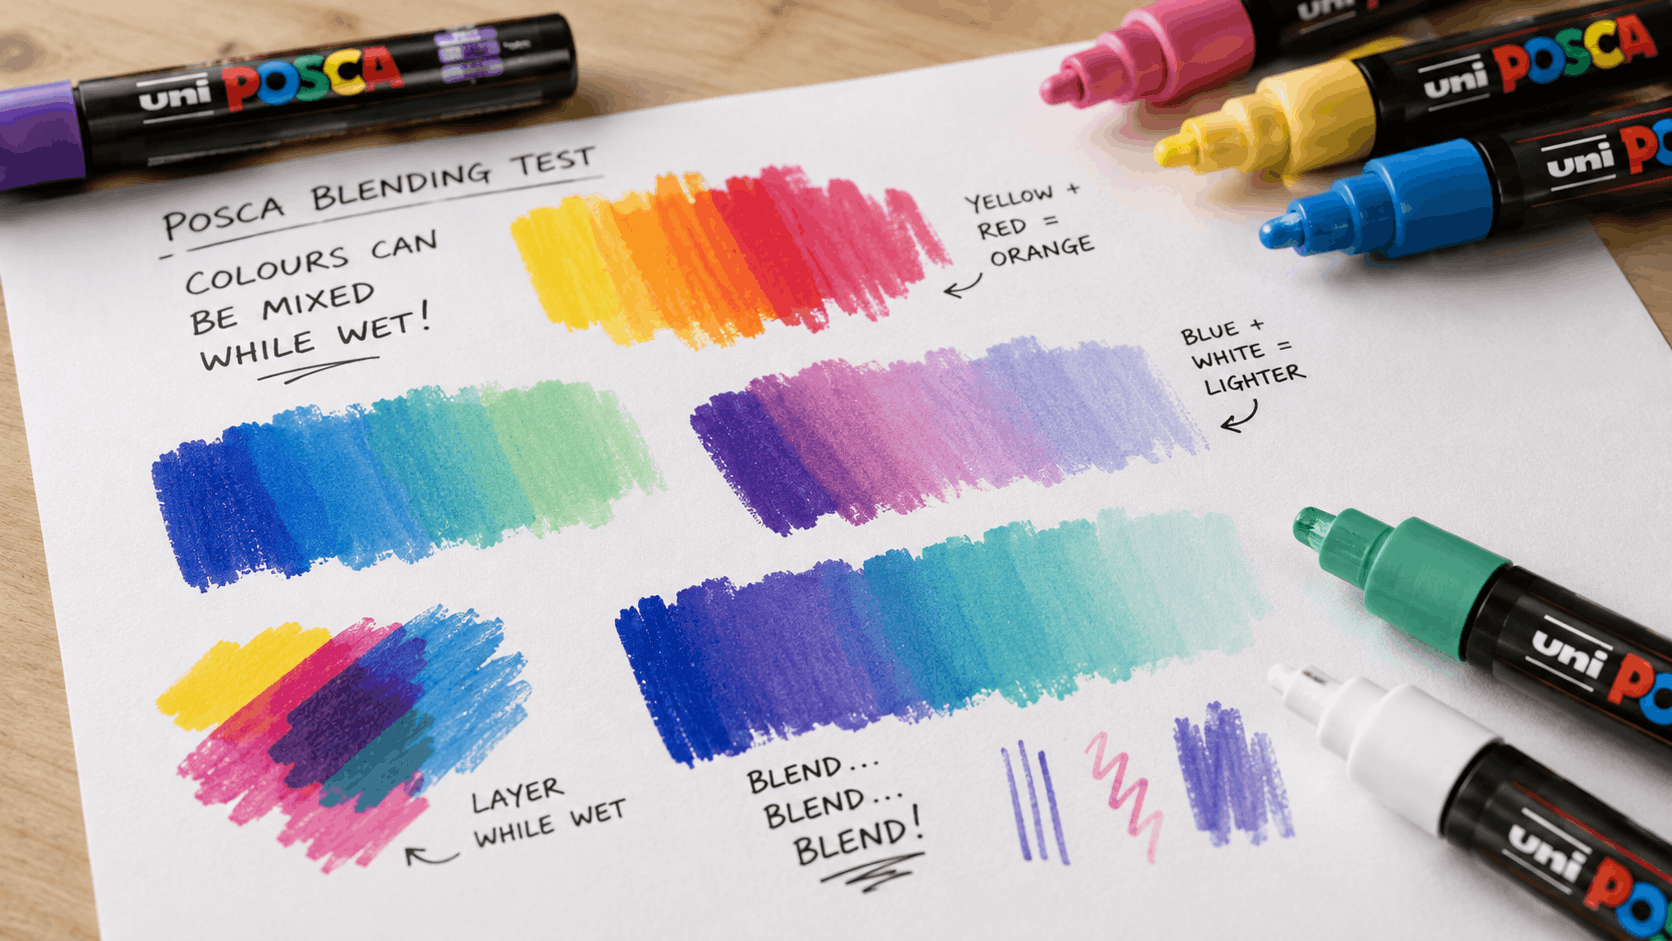 uni POSCA
uni
uni POSCA
uni PO
POSCA BLENDING TEST
COLOURS CAN
BE MIXED
WHILE WET!
YELLOW +
RED =
ORANGE
BLUE +
WHITE =
LIGHTER
LAYER
WHILE WET
BLEND...
BLEND...
BLEND!
uni PO
uni PO